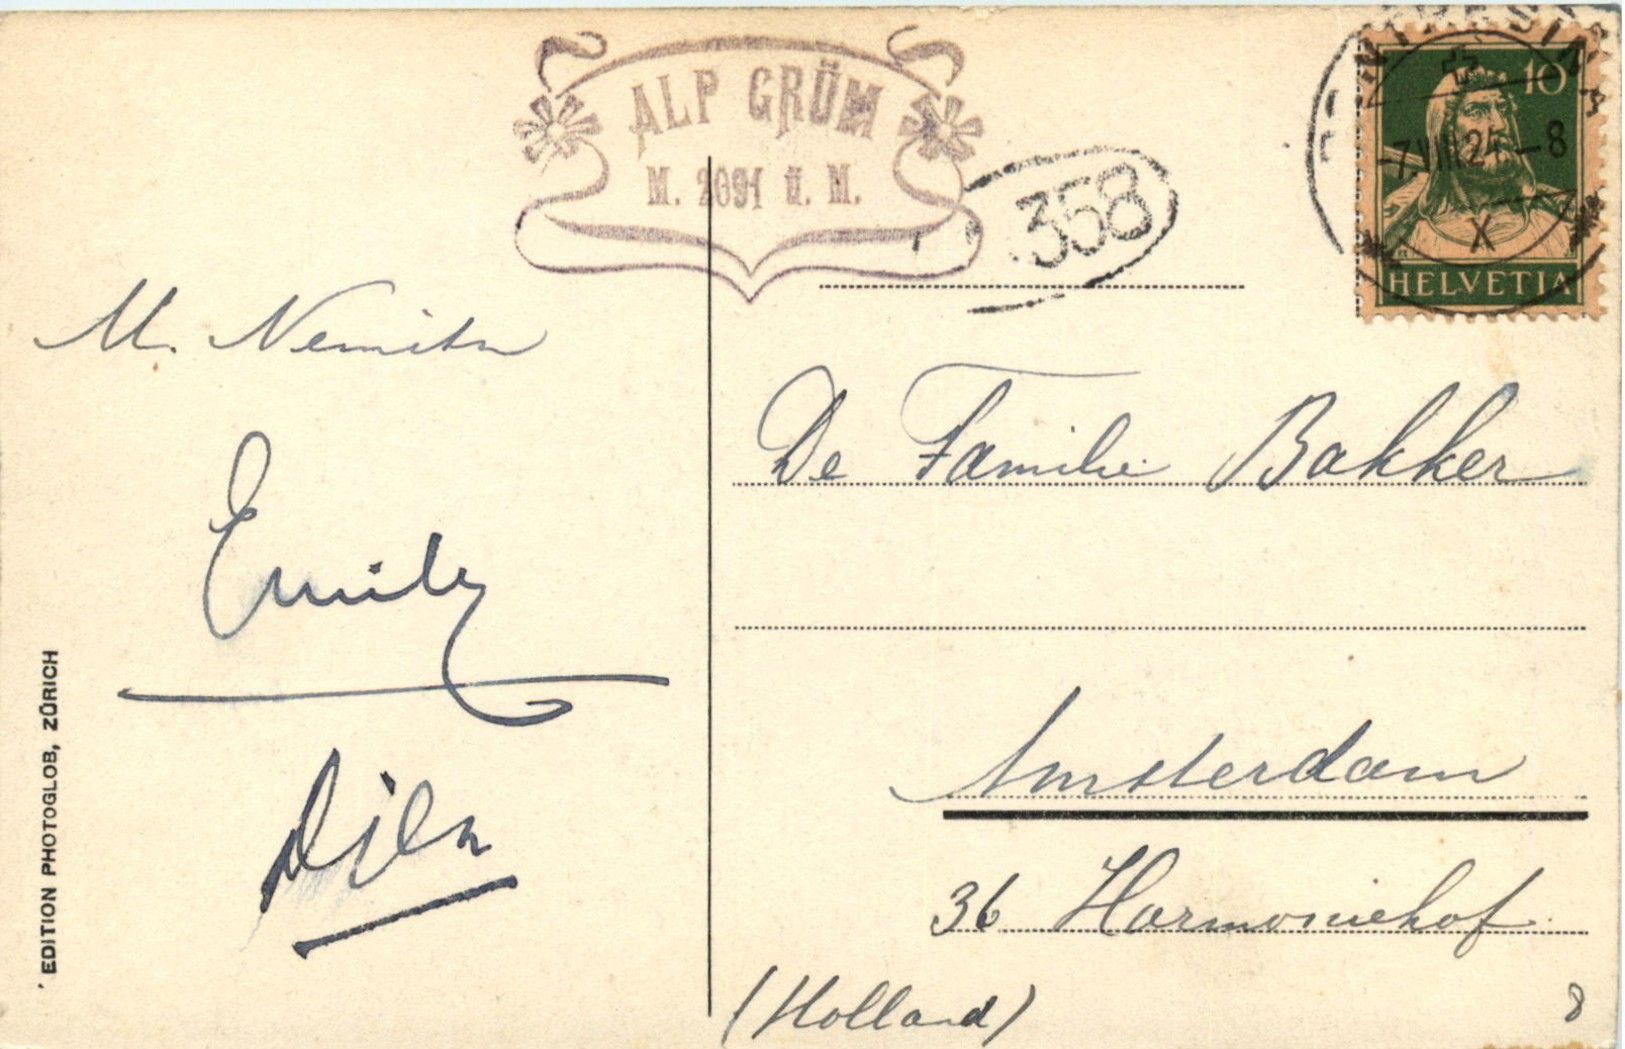 ALP GRÜM
M. 2091 ü. M.
358
PONTRESINA
-7.VIII.24.-8
X
10
HELVETIA
M.
Emily
De Familie Bakker
Amsterdam
36 Harmoniehof
(Holland)
8
EDITION PHOTOGLOB, ZÜRICH